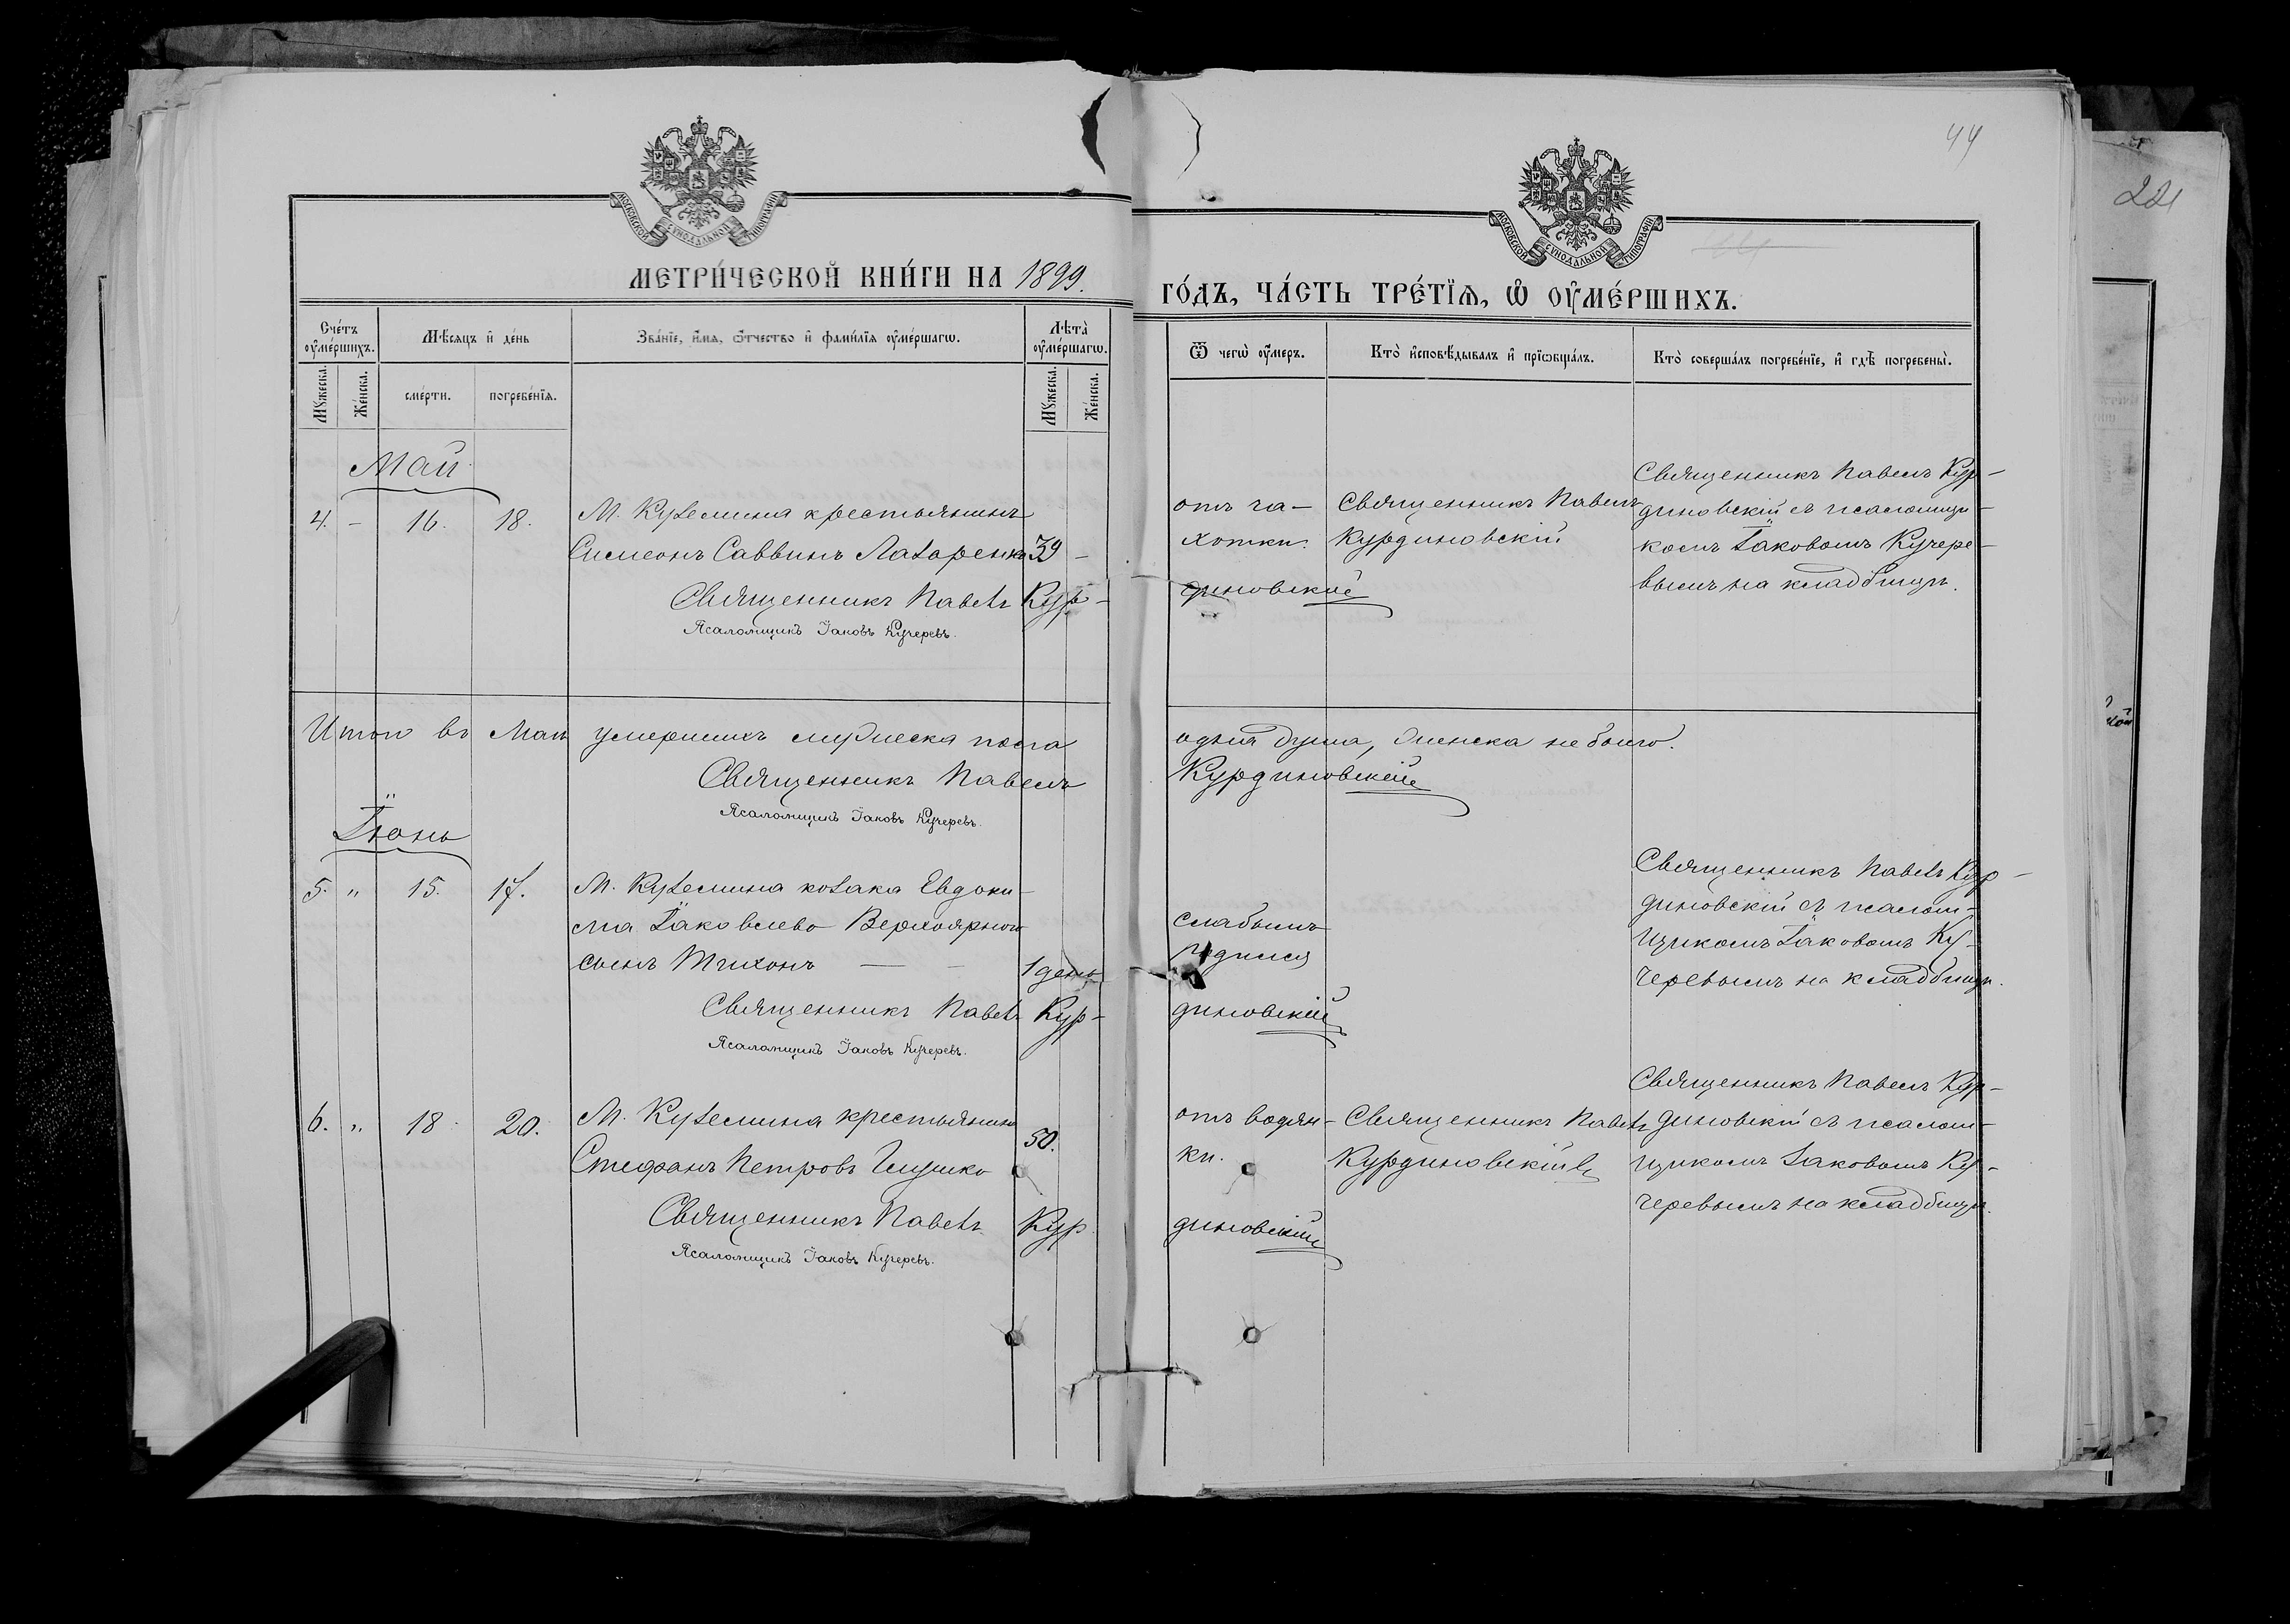 44
221
МОСКОВСКОЙ СѴНОДАЛЬНОЙ ТИПОГРАФІИ
МОСКОВСКОЙ СѴНОДАЛЬНОЙ ТИПОГРАФІИ
МЕТРИ́ЧЕСКОЙ КНИ́ГИ НА 1899.
ГО́ДЪ, ЧА́СТЬ ТРЕ́ТЇѦ, Ѽ ОУ҆МЕ́РШИХЪ.
Сче́тъ оу҆ме́ршихъ.
Мѣ́сяцъ и҆ де́нь
Зва́нїе, и҆́мѧ, ѻ҆́тчество и҆ фами́лїѧ оу҆ме́ршагѡ.
Лѣта̀ оу҆ме́ршагѡ.
Ѿ чегѡ̀ оу҆́меръ.
Кто̀ и҆сповѣ́дывалъ и҆ прїѡбща́лъ.
Кто̀ соверша́лъ погребе́нїе, и҆ гдѣ̀ погребены̀.
Мꙋ́жеска.
Же́нска.
сме́рти.
погребе́нїѧ.
Мꙋ́жеска.
Же́нска.
Май
4. – 16. 18.
М. Куземина крестьянинъ
Симеонъ Саввинъ Лазаренко 39 –
Священникъ Павелъ Кур-
диновскій
Псаломщикъ Іаковъ Кучеревъ.
отъ ча-
хотки.
Священникъ Павелъ
Курдиновскій
Священникъ Павелъ Кур-
диновскій съ псаломщи-
комъ Іаковомъ Кучере-
вымъ на кладбищѣ.
Итого въ Маѣ умершихъ мужеска пола
одна душа, женска не было.
Священникъ Павелъ
Курдиновскій
Псаломщикъ Іаковъ Кучеревъ.
Іюнь
5. „ 15. 17.
М. Куземина козака Евдоки-
ма Іаковлево Верхоярного
сынъ Тихонъ — – 1 день
Священникъ Павелъ Кур-
диновскій
Псаломщикъ Іаковъ Кучеревъ.
слабымъ
родился
Священникъ Павелъ Кур-
диновскій съ псалом-
щикомъ Іаковомъ Ку-
черевымъ на кладбищѣ.
6. „ 18. 20.
М. Куземина крестьянинъ
Стефанъ Петровъ 50.
Священникъ Павелъ Кур
диновскій
Псаломщикъ Іаковъ Кучеревъ.
отъ водян-
ки.
Священникъ Павелъ
Курдиновскій
Священникъ Павелъ Кур-
диновскій съ псалом-
щикомъ Іаковомъ Ку-
черевымъ на кладбищѣ.